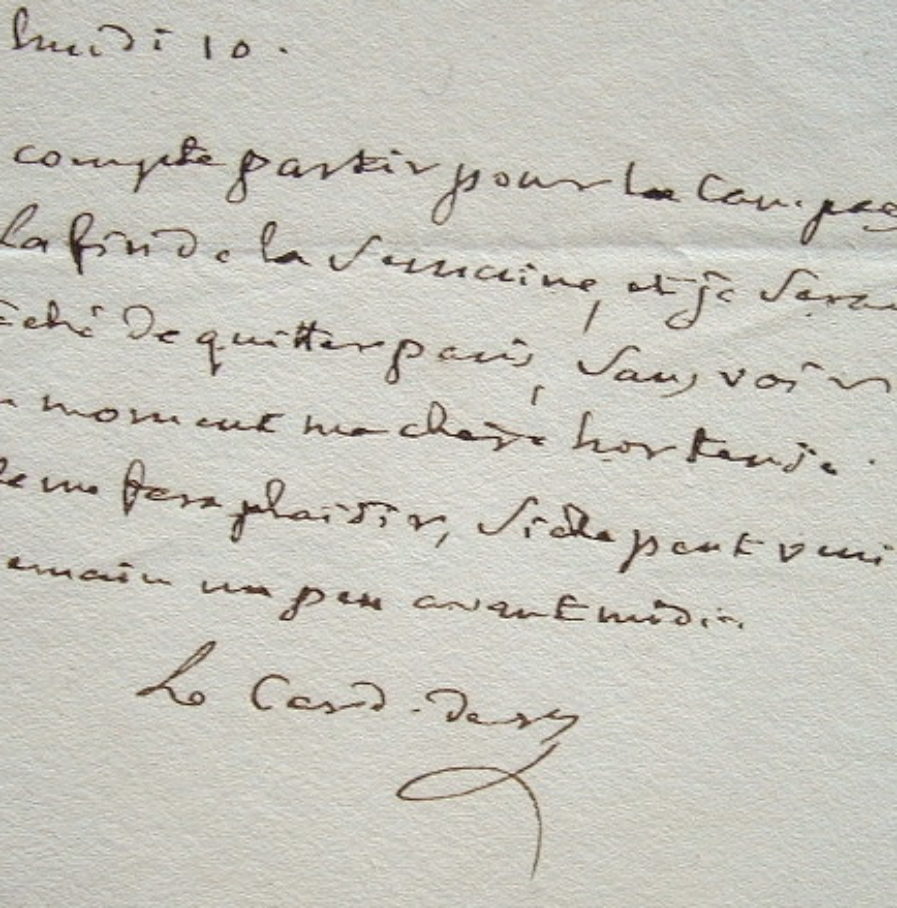 lundi 10.
compte partir pour la campag
la fin de la semaine, et je serai
ché de quitter paris, sans voir
moment ma chere hortense.
le me fera plaisir, si elle peut veni
emain un peu avant midi.
Le Card.